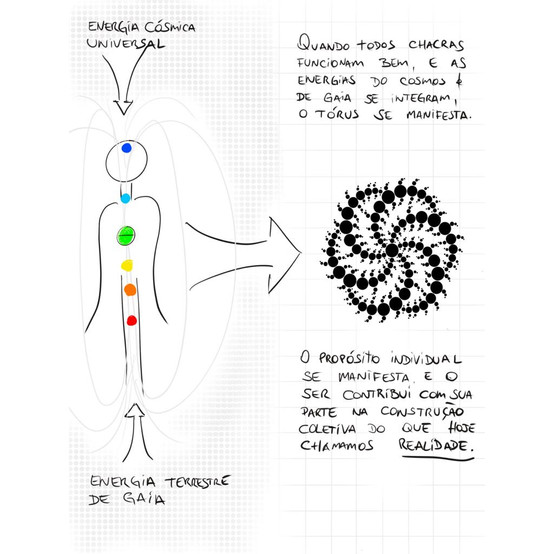 ENERGIA CÓSMICA
UNIVERSAL
QUANDO TODOS CHACRAS
FUNCIONAM BEM, E AS
ENERGIAS DO COSMOS &
DE GAIA SE INTEGRAM,
O TÓRUS SE MANIFESTA.
O PROPÓSITO INDIVIDUAL
SE MANIFESTA E O
SER CONTRIBUI COM SUA
PARTE NA CONSTRUÇÃO
COLETIVA DO QUE HOJE
CHAMAMOS REALIDADE.
ENERGIA TERRESTRE
DE GAIA